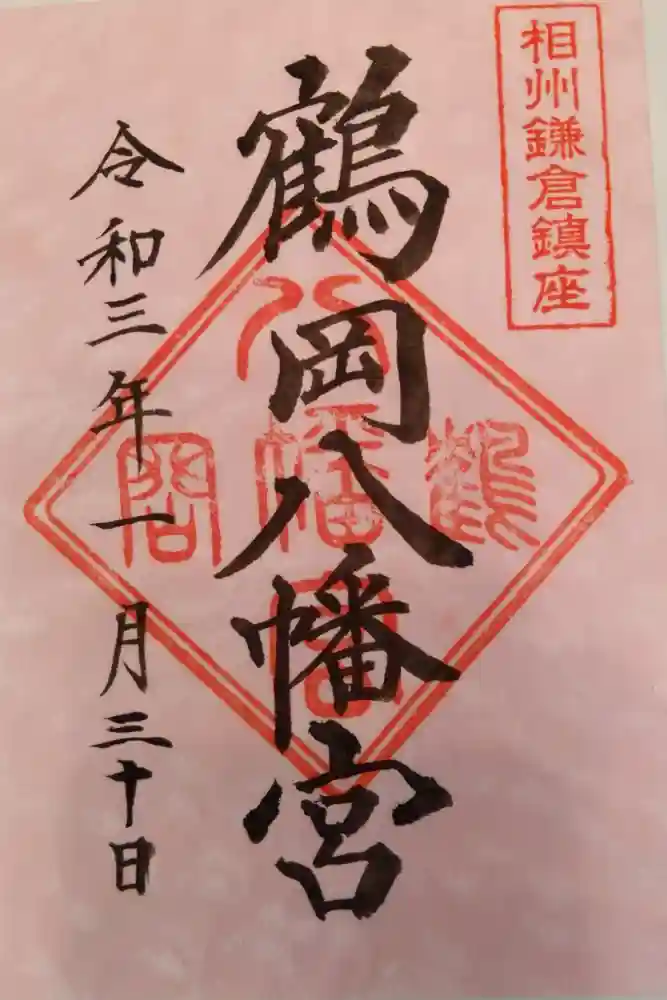 相州鎌倉鎮座
鶴岡八幡宮
令和三年一月三十日
鶴
八幡宮
岡